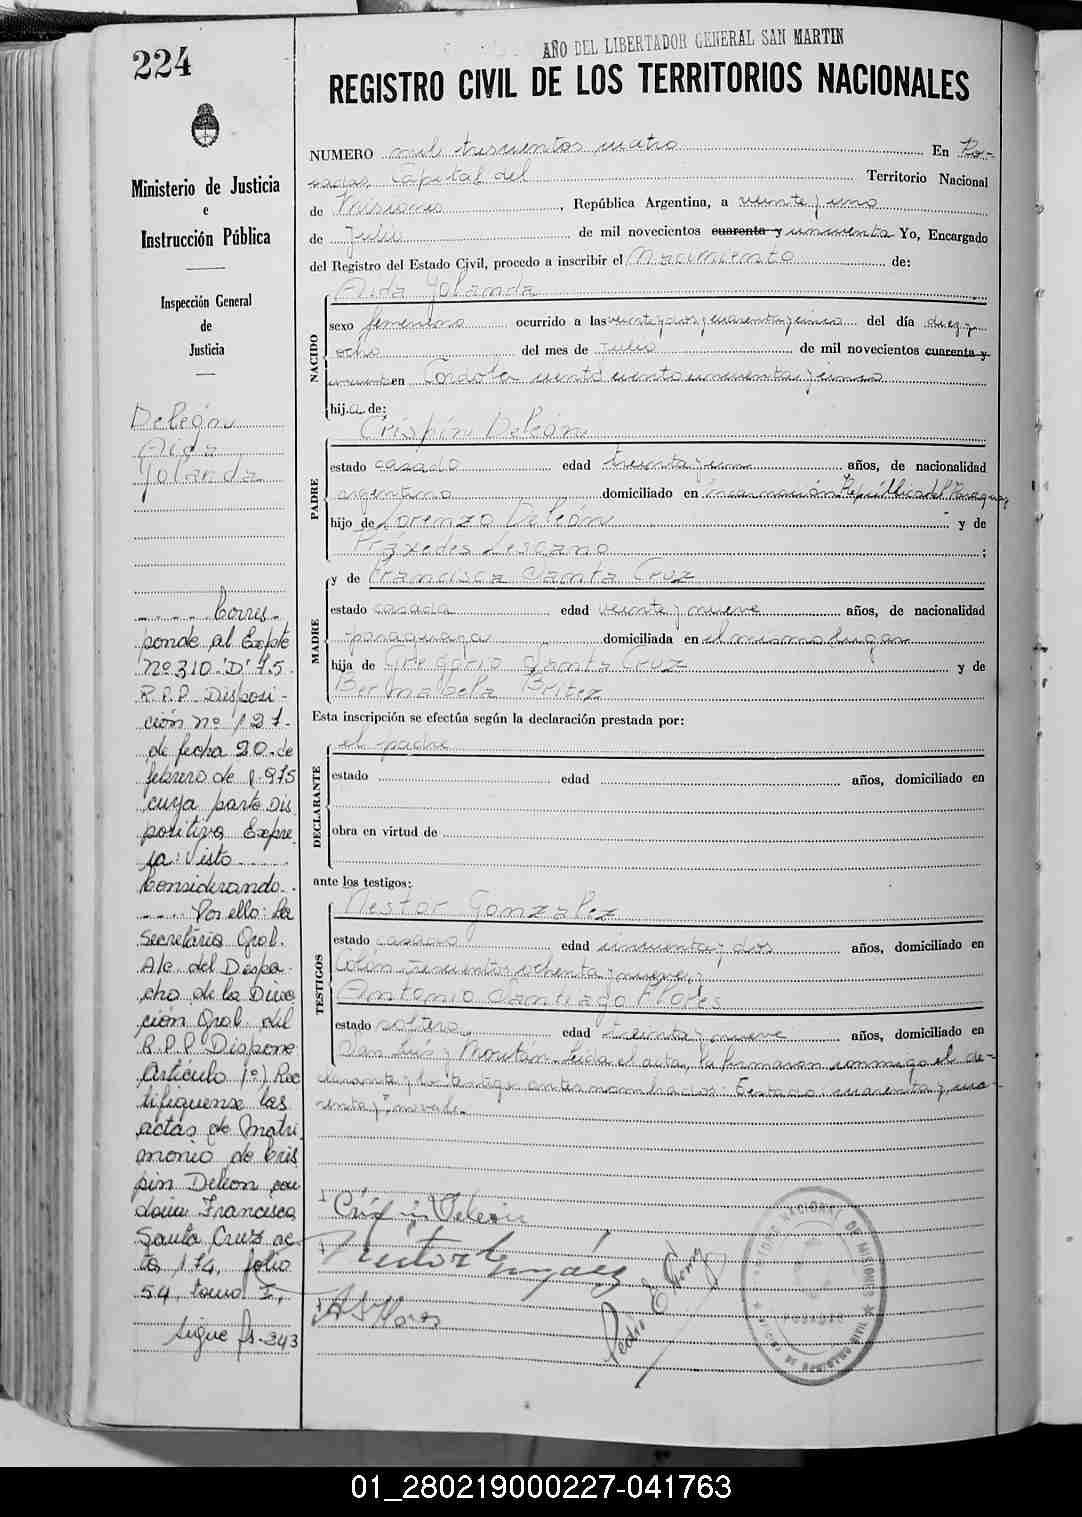 224
AÑO DEL LIBERTADOR GENERAL SAN MARTIN
REGISTRO CIVIL DE LOS TERRITORIOS NACIONALES
Ministerio de Justicia
e
Instrucción Pública
Inspección General
de
Justicia
Deleón
Aida
Yolanda
Corres-
ponde al Expte
Nº 310 "D" 75
R.P.P. Disposi-
ción nº 127-
de fecha 20 de
febrero de 1975
cuya parte Dis
positiva Expre
sa: Visto
Considerando
Por ello: La
Secretária Gral.
A/c. del Despa-
cho de la Direc
ción Gral. del
R.P.P Dispone
Artículo 1º) Rec
tifiquense las
actas de Matri
monio de Cris
pin Deleon con
doña Francisca
Santa Cruz ac
ta 174, folio
54, tomo I,
Sigue fs. 343
NUMERO mil trescientos cuatro En Po-
sadas Capital del Territorio Nacional
de Misiones, República Argentina, a veinte y uno
de Julio de mil novecientos cuarenta y cincuenta Yo, Encargado
del Registro del Estado Civil, procedo a inscribir el Nacimiento de:
NACIDO
Aida Yolanda
sexo femenino ocurrido a las veinte y dos y cuarenta y cinco del día diez y
ocho del mes de Julio de mil novecientos cuarenta y
cincuenta en Córdoba ciento cincuenta y cinco
hija de:
PADRE
Crispín Deleón
estado casado edad treinta y un años, de nacionalidad
argentino domiciliado en Incarnación República del Paraguay
hijo de Lorenzo Deleón y de
Práxedes Lescano ;
MADRE
y de Francisca Santa Cruz
estado casada edad veinte y nueve años, de nacionalidad
paraguaya domiciliada en el mismo lugar
hija de Gregorio Santa Cruz y de
Bernabela Britez
Esta inscripción se efectúa según la declaración prestada por:
DECLARANTE
el padre
estado edad años, domiciliado en
obra en virtud de
ante los testigos:
TESTIGOS
Nestor Gonzalez
estado casado edad cincuenta y dos años, domiciliado en
Colón trescientos ochenta y nueve y
Antonio Santiago Flores
estado soltero edad treinta y nueve años, domiciliado en
San Luis y Moritan. Leida el acta, la firmaron conmigo el de-
clarante y los testigos antes nombrados. Testado: cuarenta y, cua-
renta y, no vale.
Crispin Deleon
Nestor Gonzáez
A S Flores
Pedro E
01_280219000227-041763